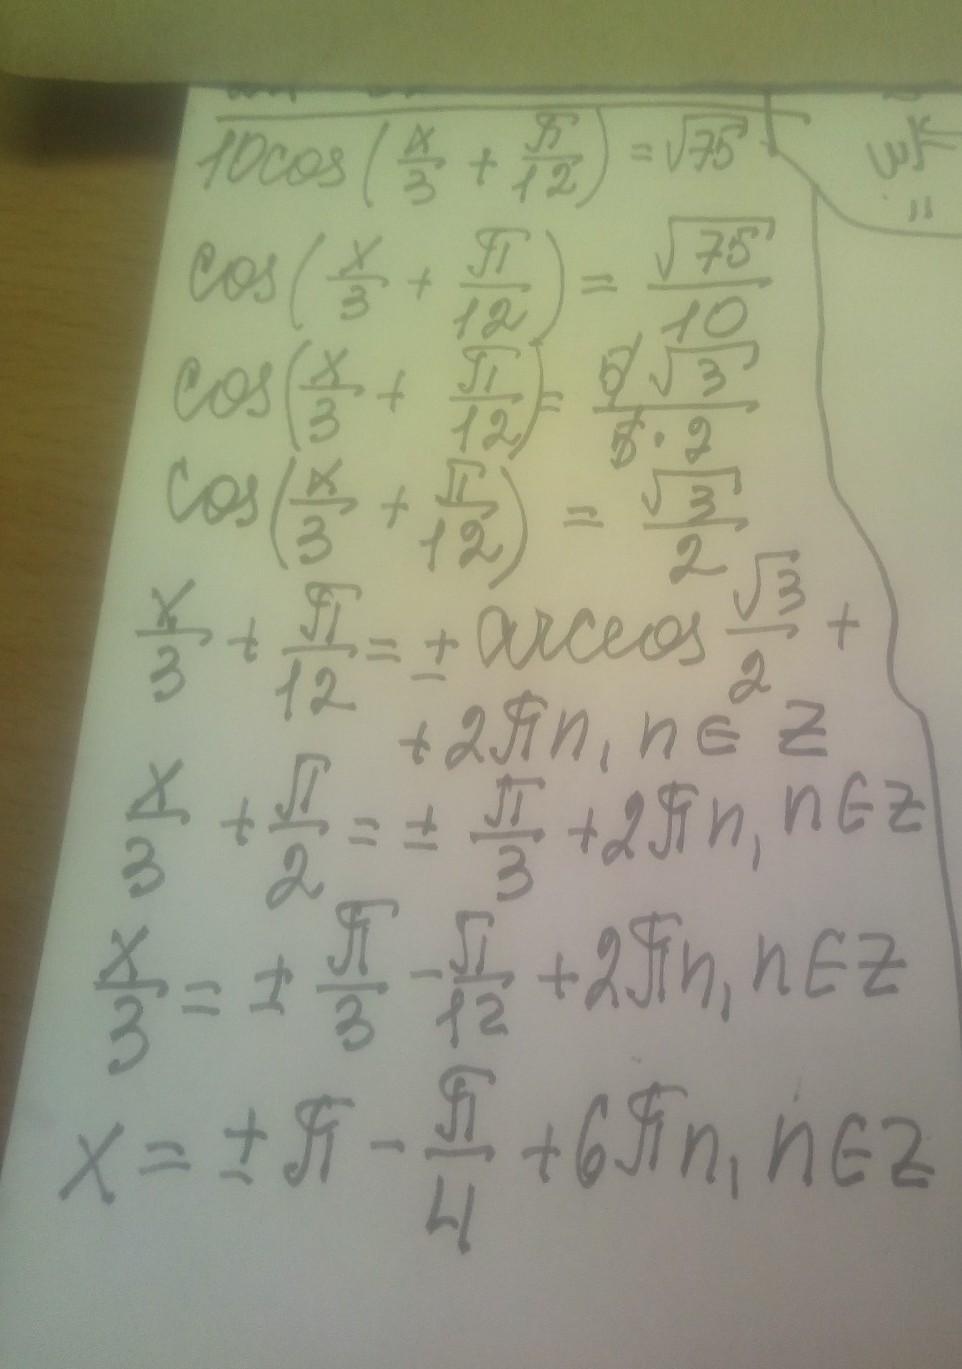 10cos(x/3 + π/12) = √75
cos(x/3 + π/12) = √75/10
cos(x/3 + π/12) = 5√3/5·2
cos(x/3 + π/12) = √3/2
x/3 + π/12 = ± arccos √3/2 +
+ 2πn, n ∈ Z
x/3 + π/2 = ± π/3 + 2πn, n ∈ Z
x/3 = ± π/3 - π/12 + 2πn, n ∈ Z
x = ± π - π/4 + 6πn, n ∈ Z